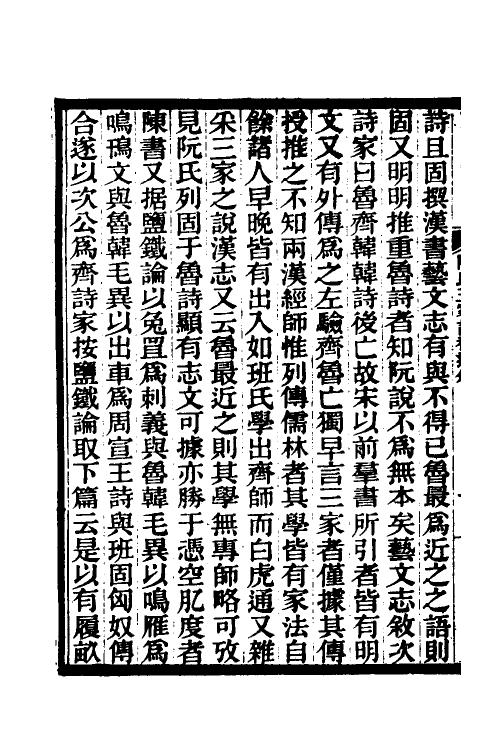 詩且固撰漢書藝文志有與不得已魯最為近之之語則
固又明明推重魯詩者知阮說不為無本矣藝文志敘次
詩家曰魯齊韓韓詩後亡故宋以前羣書所引者皆有明
文又有外傳為之左驗齊魯亡獨早言三家者僅據其傳
授推之不知兩漢經師惟列傳儒林者其學皆有家法自
餘諸人早晚皆有出入如班氏學出齊師而白虎通又雜
采三家之說漢志又云魯最近之則其學無專師略可攷
見阮氏列固于魯詩顯有志文可據亦勝于憑空肊度者
陳書又据鹽鐵論以兔罝為刺義與魯韓毛異以鳴雁為
鳴鳱文與魯韓毛異以出車為周宣王詩與班固匈奴傳
合遂以次公為齊詩家按鹽鐵論取下篇云是以有履畝